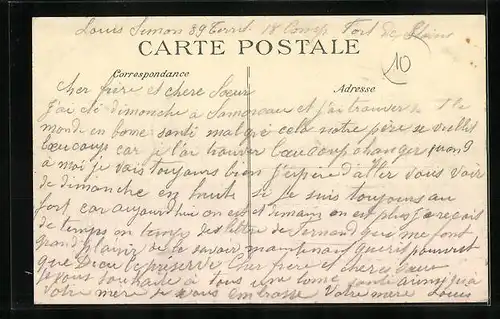 Louis Simon 39 Territ. 18 Comp. Fort de
CARTE POSTALE
10
Correspondance
Adresse
cher frère et chere Sœur
J'ai été dimanche à et j'ai trouver
monde en bone santé malgré cela notre père se vieillit
bœucoup car je l'ai trouver bœucoup changer quand
à moi je vais toujours bien J'espère d'aller vous voir
de dimanche en huit si je suis toujours au
fort car aujourd'hui on est et demain on est plus J'ai reçois
de temps en temps des lettre de Fernand que me font
grand plaizir de le savoir maintenant guerit pourvut
que Dieu le préserve Cher frère et chere Sœur
je vous souhaite à tous une bone santé ainsi qu'a
votre mère je vous embrasse Votre Louis